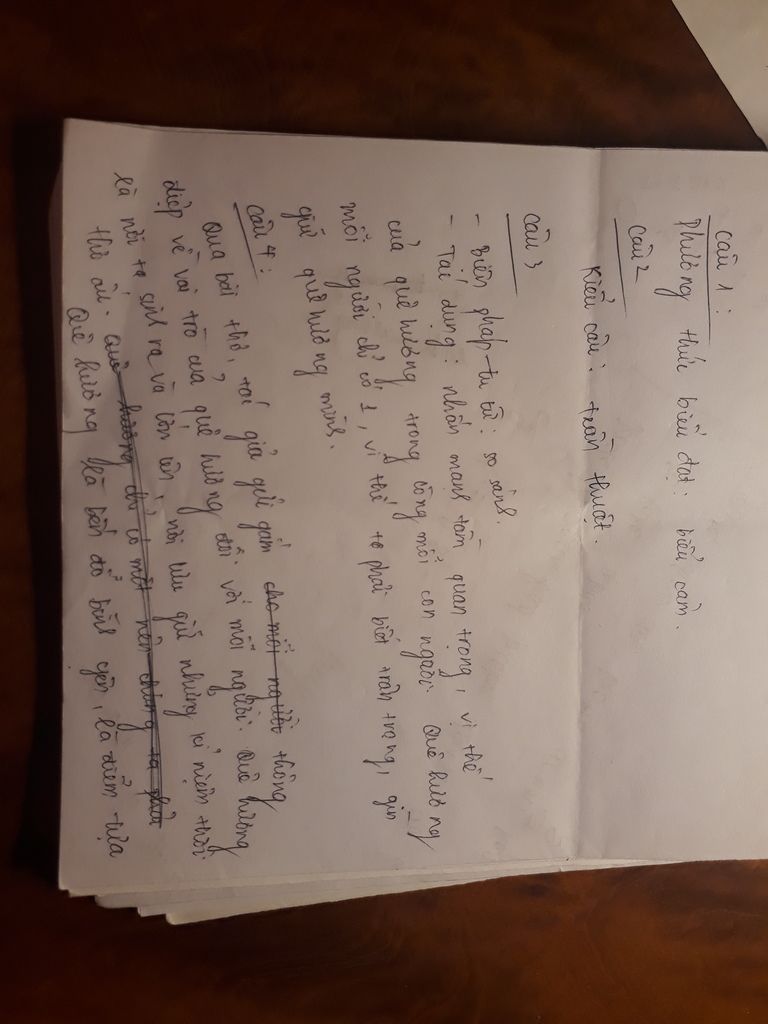 Câu 1:
Phương thức biểu đạt: biểu cảm.
Câu 2
Kiểu câu: trần thuật.
Câu 3
- Biện pháp tu từ: so sánh.
- Tác dụng: nhấn mạnh tầm quan trọng, vị thế
của quê hương trong lòng mỗi con người. Quê hương
mỗi người chỉ có 1, vì thế ta phải biết trân trọng, gìn
giữ quê hương mình.
Câu 4:
Qua bài thơ, tác giả gửi gắm cho mỗi người thông
điệp về vai trò của quê hương đối với mỗi người. Quê hương
là nơi ta sinh ra và lớn lên, nơi lưu giữ những kỉ niệm thời
thơ ấu. Quê hương chỉ có một nên chúng ta phải
Quê hương là bến đỗ bình yên, là điểm tựa